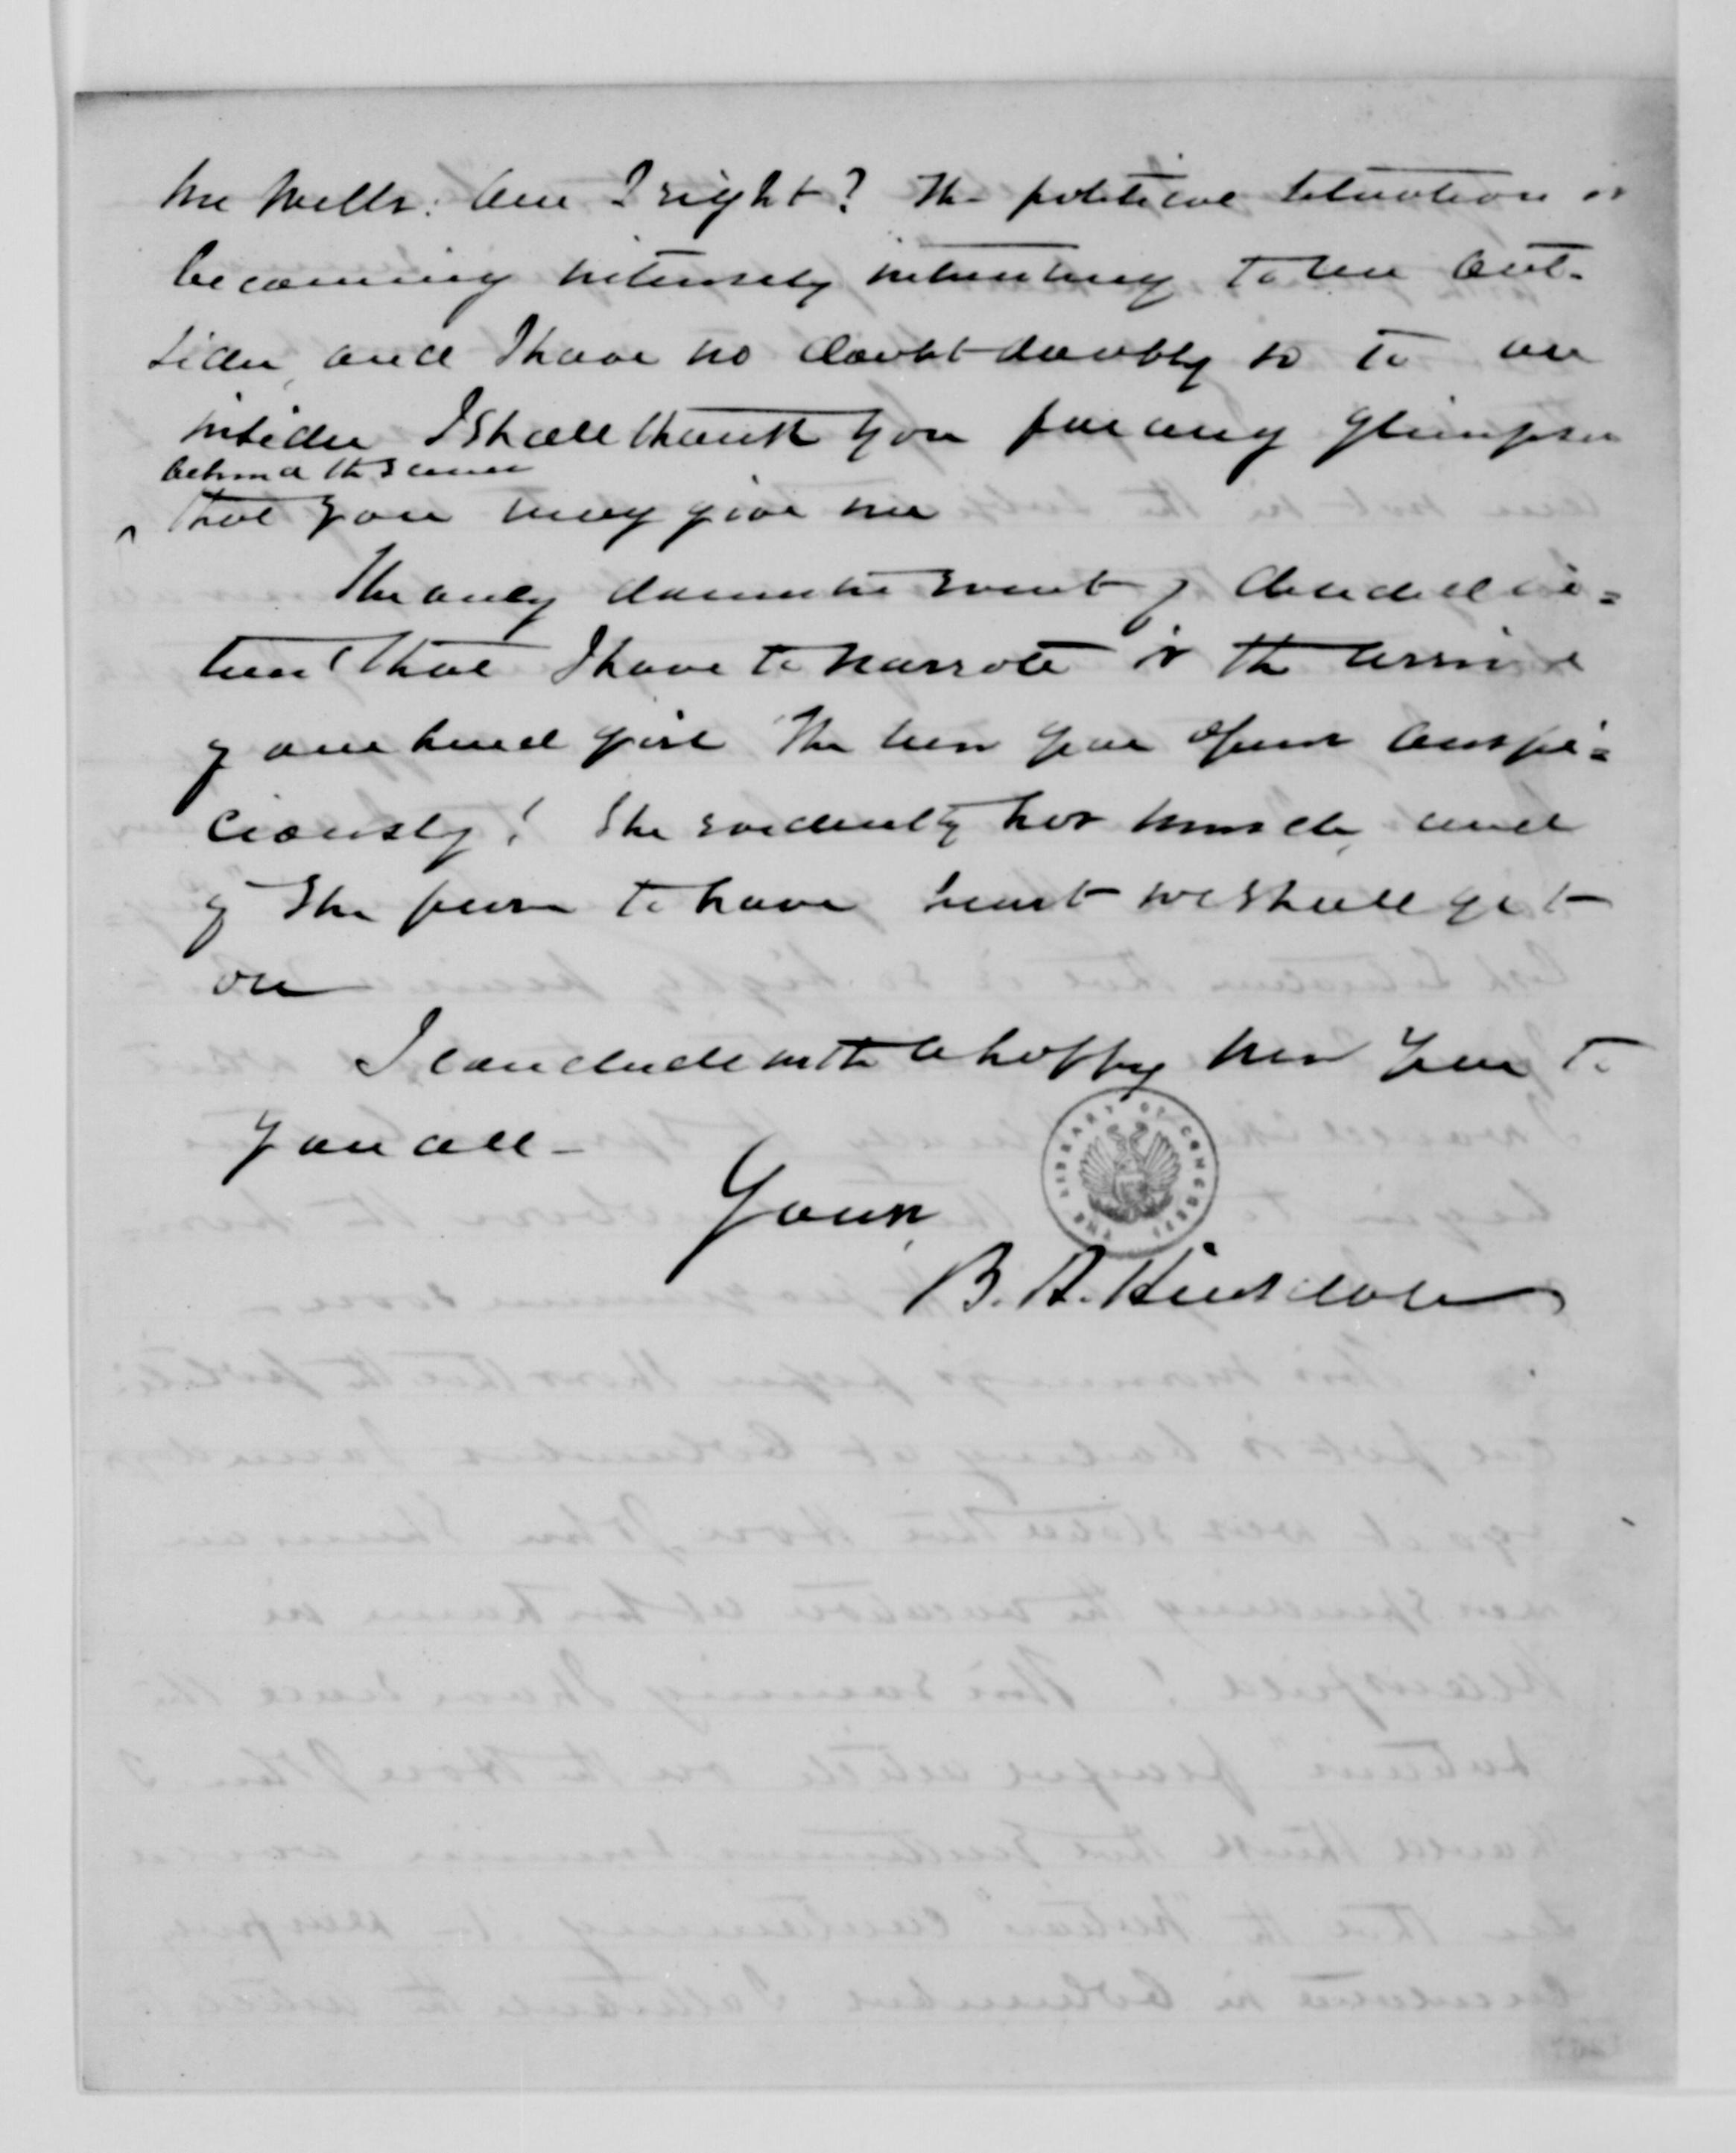 Mr Mills. Am I right? The political situation is
becoming intensely interesting to an out-
sider, and I have no doubt doubly so to an
insider I shall thank you for any glimpses
behind the scenes
^ that you may give me
The only domestic event of
that I have to narrate is the arrival
of our hired girl The new year opens auspi=
ciously! She evidently has muscle, and
if she prove to have heart we shall get
on
I conclude with a happy new year to
you all -
Yours,
B. A. Hinsdale
THE LIBRARY OF CONGRESS